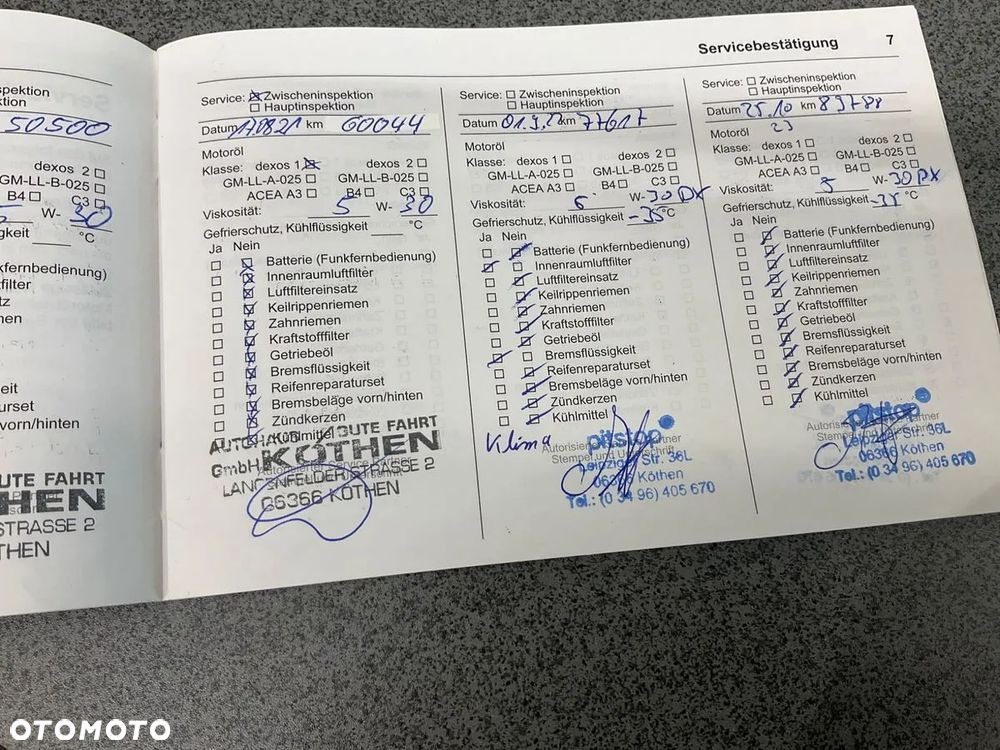 spektion
ktion
50500
dexos 2
GM-LL-B-025
B4 C3
W- 30
gkeit °C
kfernbedienung)
filter
tz
men
eit
urset
vorn/hinten)
UTE FAHRT
HEN
STRASSE 2
THEN
Servicebestätigung 7
Service: Zwischeninspektion
Hauptinspektion
Datum 170821 km 60044
Motoröl
Klasse: dexos 1 dexos 2
GM-LL-A-025 GM-LL-B-025
ACEA A3 B4 C3
Viskosität: 5 W- 30
Gefrierschutz, Kühlflüssigkeit °C
Ja Nein
Batterie (Funkfernbedienung)
Innenraumluftfilter
Luftfiltereinsatz
Keilrippenriemen
Zahnriemen
Kraftstofffilter
Getriebeöl
Bremsflüssigkeit
Reifenreparaturset
Bremsbeläge vorn/hinten
Zündkerzen
Kühlmittel
AUTOHAUS GUTE FAHRT
GmbH KÖTHEN
LANGENFELDER STRASSE 2
06366 KÖTHEN
Service: Zwischeninspektion
Hauptinspektion
Datum 01.9.22 km 77617
Motoröl
Klasse: dexos 1 dexos 2
GM-LL-A-025 GM-LL-B-025
ACEA A3 B4 C3
Viskosität: 5 W- 30 DX
Gefrierschutz, Kühlflüssigkeit -35 °C
Ja Nein
Batterie (Funkfernbedienung)
Innenraumluftfilter
Luftfiltereinsatz
Keilrippenriemen
Zahnriemen
Kraftstofffilter
Getriebeöl
Bremsflüssigkeit
Reifenreparaturset
Bremsbeläge vorn/hinten
Zündkerzen
Kühlmittel
Klima
pitstop
Leipziger Str. 36L
06366 Köthen
Tel.: (0 34 96) 405 670
Service: Zwischeninspektion
Hauptinspektion
Datum 25.10 km 83788
23
Motoröl
Klasse: dexos 1 dexos 2
GM-LL-A-025 GM-LL-B-025
ACEA A3 B4 C3
Viskosität: 5 W- 30 DX
Gefrierschutz, Kühlflüssigkeit -35 °C
Ja Nein
Batterie (Funkfernbedienung)
Innenraumluftfilter
Luftfiltereinsatz
Keilrippenriemen
Zahnriemen
Kraftstofffilter
Getriebeöl
Bremsflüssigkeit
Reifenreparaturset
Bremsbeläge vorn/hinten
Zündkerzen
Kühlmittel
pitstop
Leipziger Str. 36L
06366 Köthen
Tel.: (0 34 96) 405 670
OTOMOTO